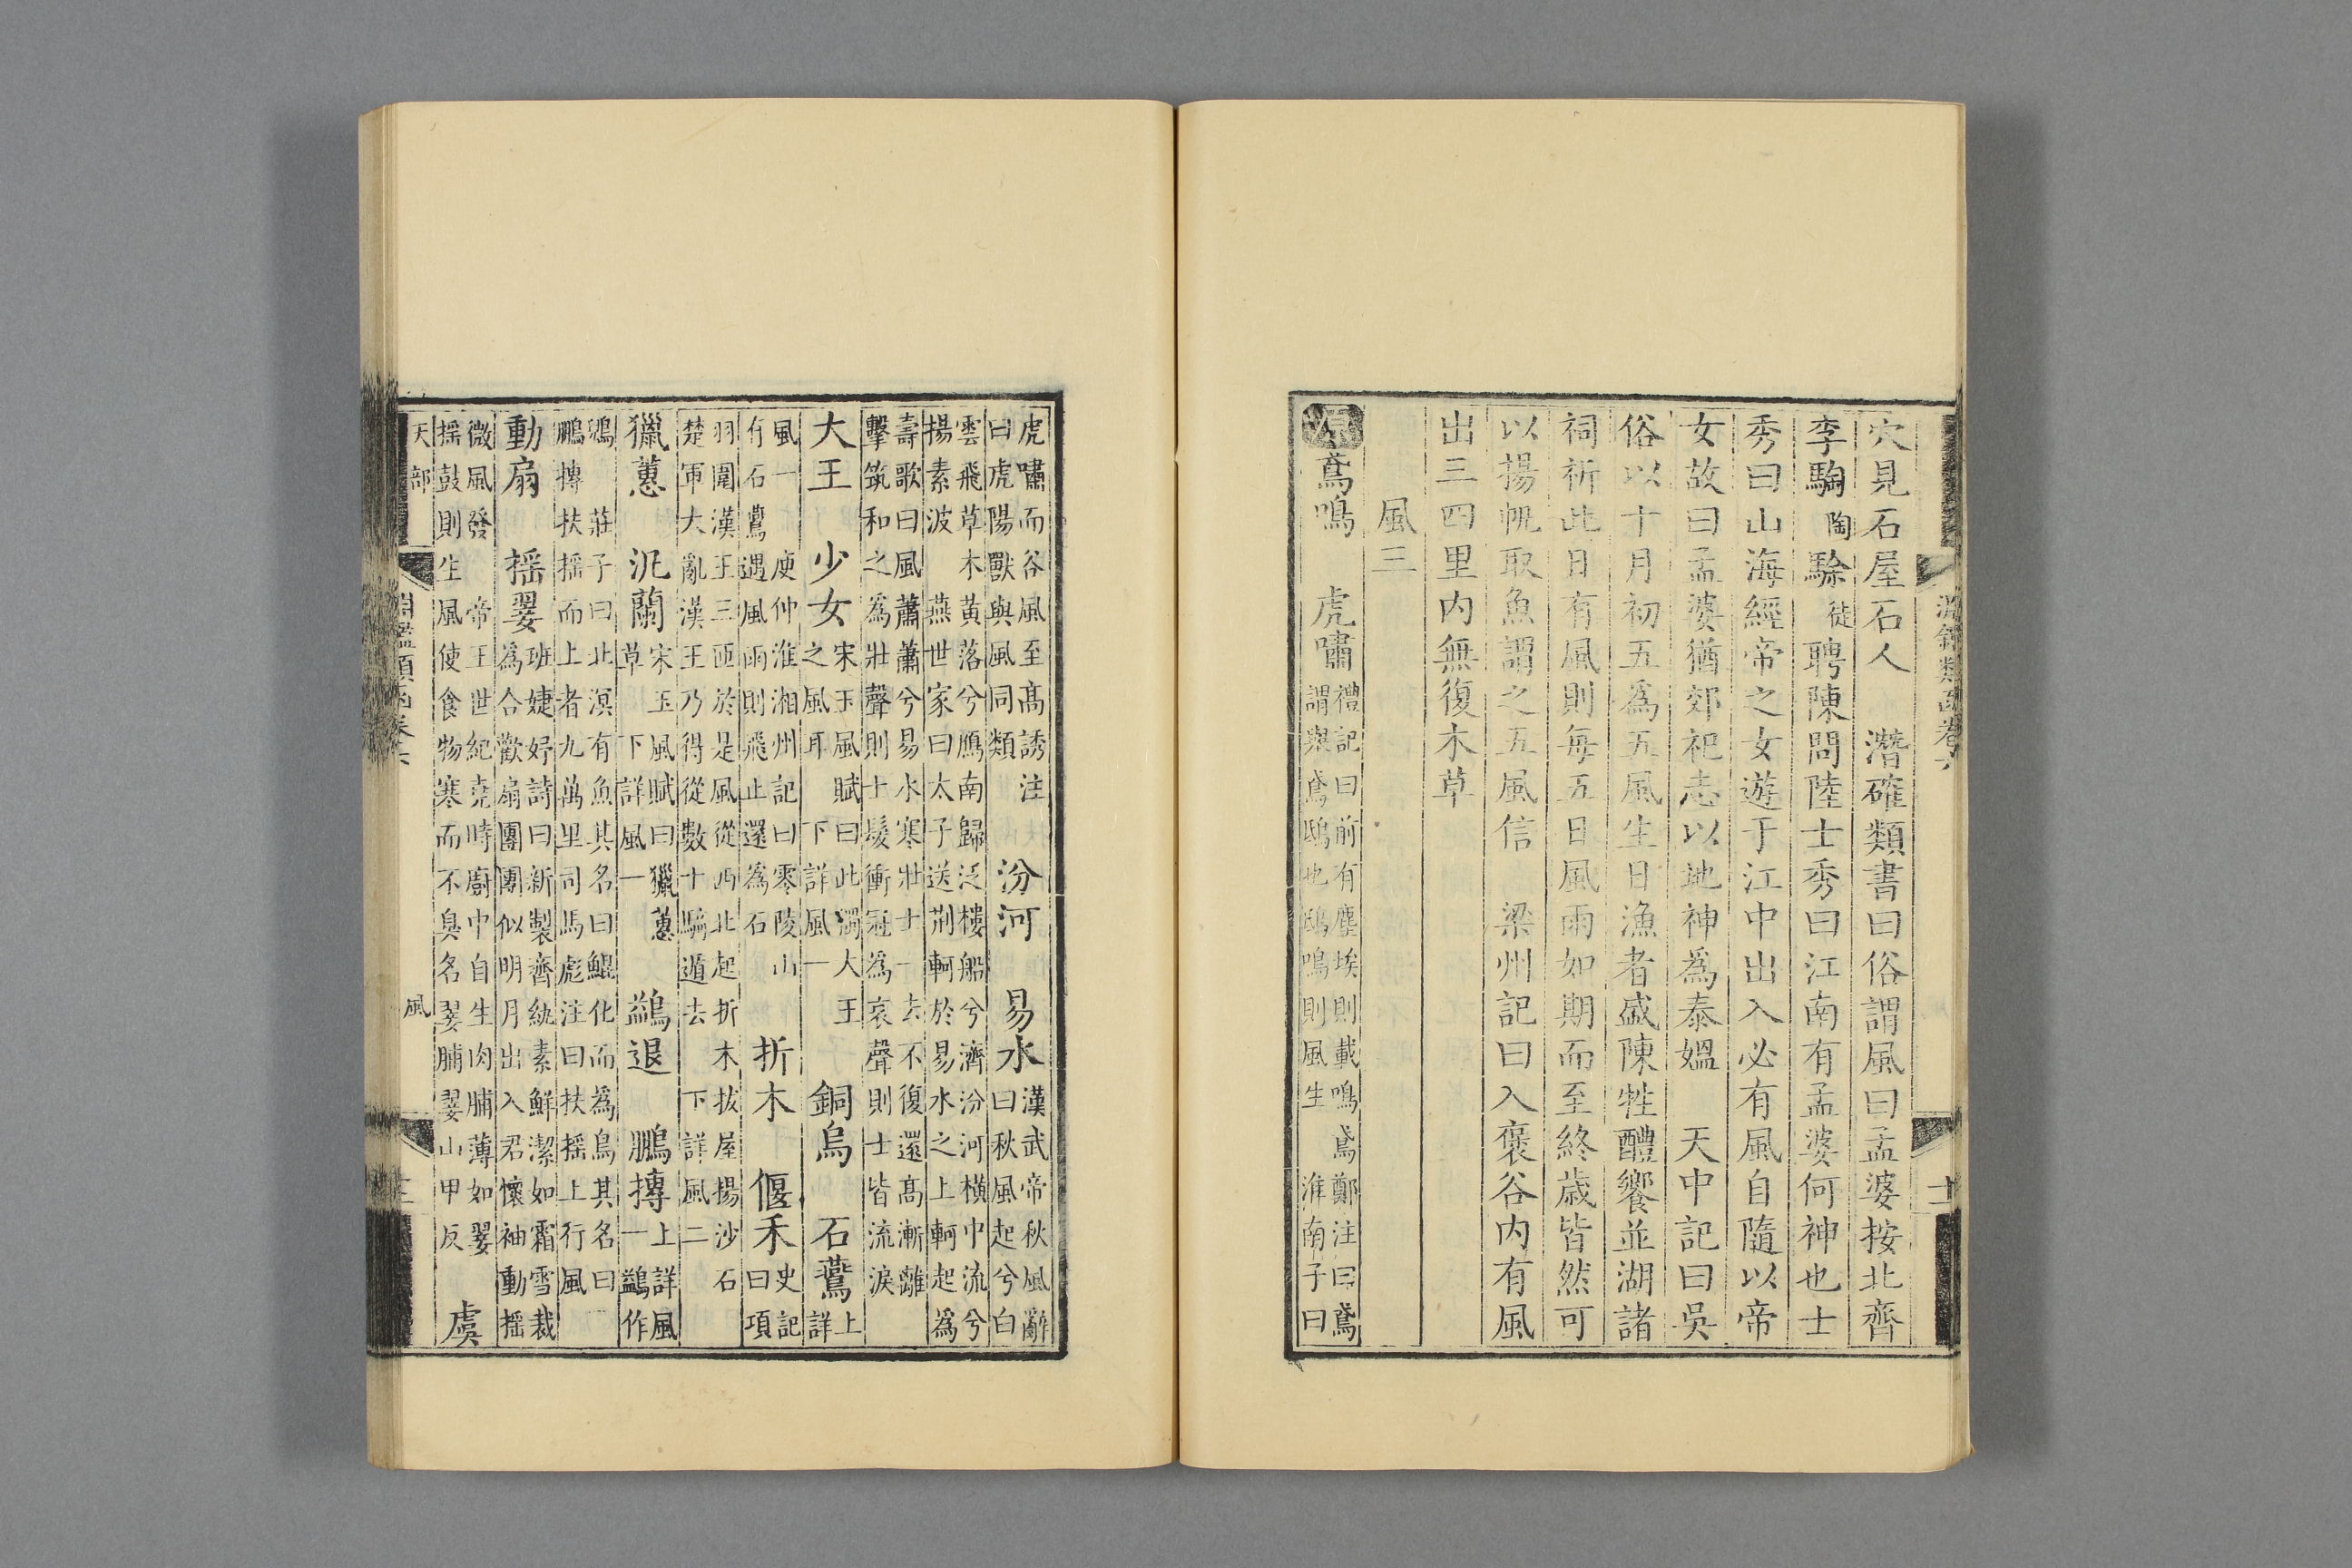 穴見石屋石人　潛確類書曰俗謂風曰孟婆按北齊
李騊陶駼徒聘陳問陸士秀曰江南有孟婆何神也士
秀曰山海經帝之女遊于江中出入必有風自隨以帝
女故曰孟婆猶郊祀志以地神為泰媼　天中記曰吳
俗以十月初五為五風生日漁者盛陳牲醴饗並湖諸
祠祈此日有風則每五日風雨如期而至終歲皆然可
以揚帆取魚謂之五風信　梁州記曰入褒谷內有風
出三四里內無復木草
風三
原鳶鳴　虎嘯
禮記曰前有塵埃則載鳴鳶鄭注曰鳶
謂與鳶鴟也鴟鳴則風生　淮南子曰
虎嘯而谷風至高誘注
曰虎陽獸與風同類
汾河　易水
漢武帝秋風辭
曰秋風起兮白
雲飛草木黃落兮鴈南歸泛樓船兮濟汾河橫中流兮
揚素波　燕世家曰太子送荊軻於易水之上軻起為
壽歌曰風蕭蕭兮易水寒壯士一去不復還高漸離
擊筑和之為壯聲則士髮衝冠為哀聲則士皆流淚
大王　少女
宋玉風賦曰此獨大王
之風耳　下詳風一
銅烏　石鷰
上
詳
風一　庾仲淮湘州記曰零陵山
有石鷰遇風雨則飛止還為石
折木　偃禾
史記
曰項
羽圍漢王三匝於是風從西北起折木拔屋揚沙石
楚軍大亂漢王乃得從數十騎遁去　下詳風二
獵蕙　泥蘭
宋玉風賦曰獵蕙
草　下詳風一
鷁退　鵬摶
上詳風
一鷁作
鶂　莊子曰北溟有魚其名曰鯤化而為鳥其名曰
鵬摶扶搖而上者九萬里司馬彪注曰扶搖上行風
動扇　搖翣
班婕妤詩曰新製齊紈素鮮潔如霜雪裁
為合歡扇團團似明月出入君懷袖動搖
微風發　帝王世紀堯時廚中自生肉脯薄如翣
搖鼓則生風使食物寒而不臭名翣脯翣山甲反
虞
天部
淵鑑類函卷六
風